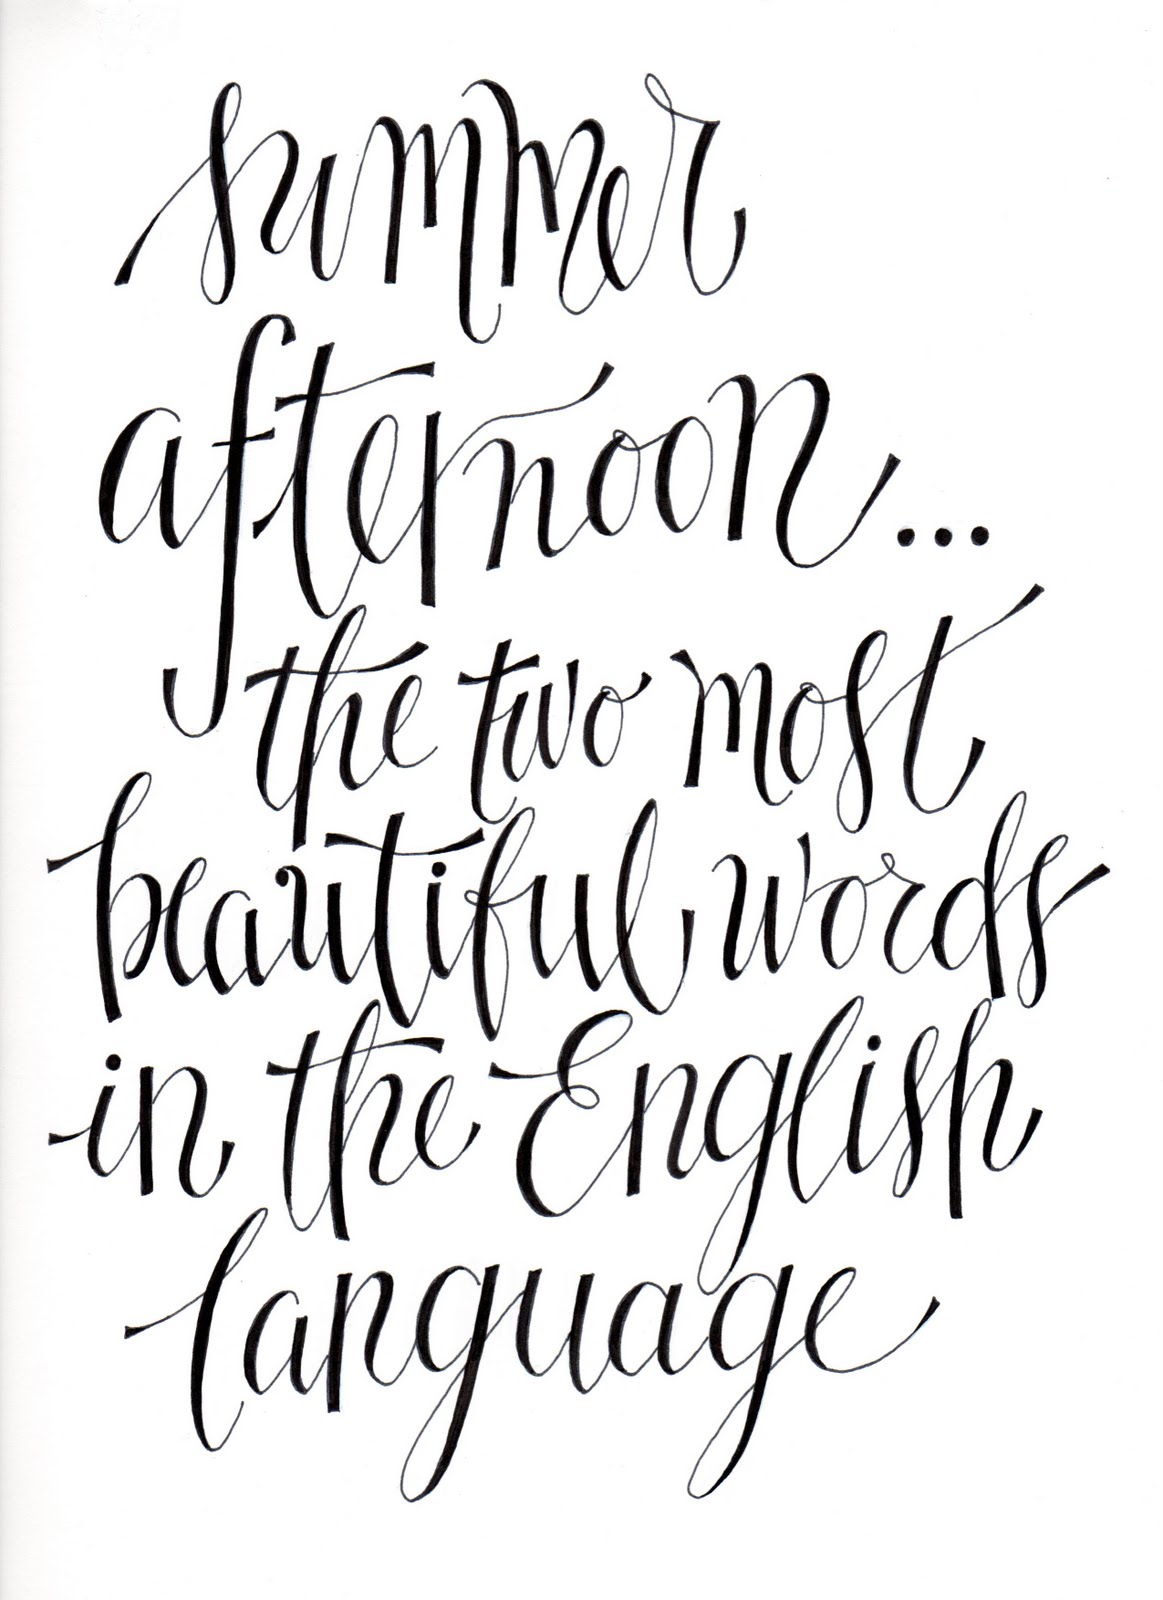 summer
afternoon...
the two most
beautiful words
in the English
language